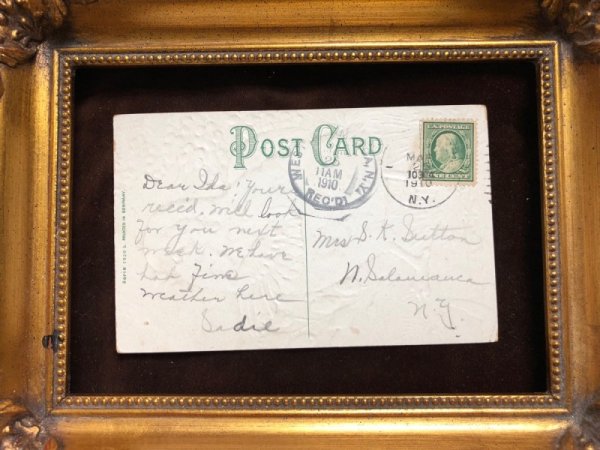 POST CARD
U.S. POSTAGE
11 AM
1910
REC'D
MA
1910
N.Y.
Dear Ida; Yours
rec'd. Will look
for you next
week. We have
had fine
weather here
Sadie
Mrs S. K. Sutton
N. Salamanca
N.Y.
PRINTED IN GERMANY.